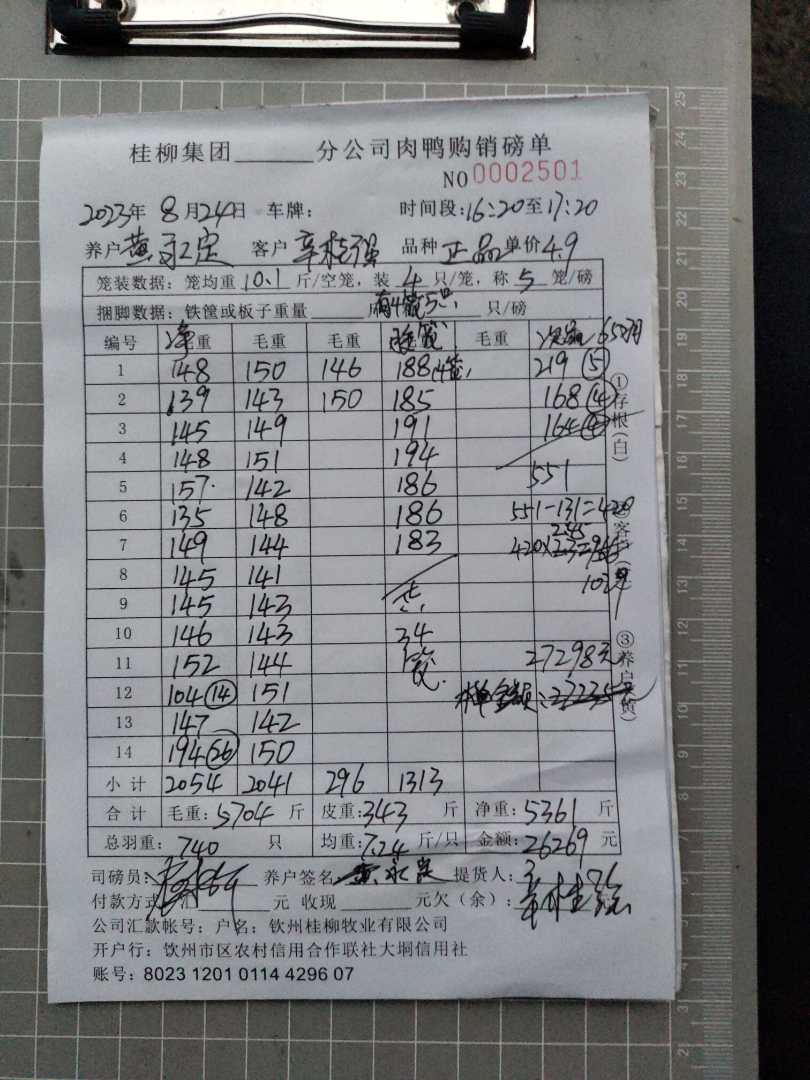 桂柳集团______分公司肉鸭购销磅单
NO 0002501
2023年 8月24日 车牌: 时间段:16:20至17:20
养户 黄永定 客户 品种 正品 单价4.9
笼装数据: 笼均重 10.1 斤/空笼, 装 4 只/笼, 称 5 笼/磅
捆脚数据: 铁筐或板子重量 有4笼5只 只/磅
编号 净重 毛重 毛重 毛重
1 148 150 146 188 (4笼) 219 ⑤
2 139 143 150 185 168 ④
3 145 149 191 164 ④
4 148 151 194
5 157 142 186 551
6 135 148 186 551-131=420
7 149 144 183
8 145 141
9 145 143 共
10 146 143 34
11 152 144 笼 27298元
12 104 ⑭ 151
13 147 142
14 194 150
小计 2054 2041 296 1313
合计 毛重: 5704 斤 皮重: 343 斤 净重: 5361 斤
总羽重: 740 只 均重: 7.24 斤/只 金额: 26269 元
司磅员: 养户签名 黄永定 提货人:
付款方式: 汇 元 收现 元欠(余):
公司汇款帐号: 户名: 钦州桂柳牧业有限公司
开户行: 钦州市区农村信用合作联社大垌信用社
账号: 8023 1201 0114 4296 07
①存根(白)
③养户